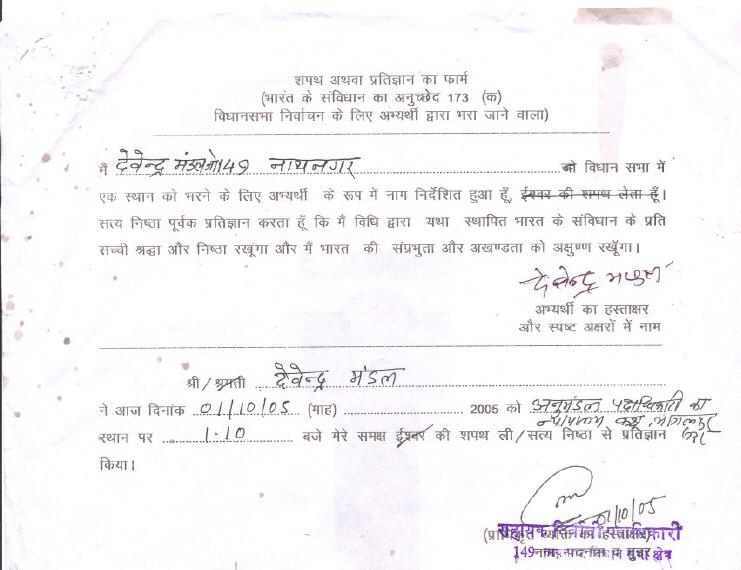 शपथ अथवा प्रतिज्ञान का फार्म
(भारत के संविधान का अनुच्छेद 173 (क)
विधानसभा निर्वाचन के लिए अभ्यर्थी द्वारा भरा जाने वाला)
मैं देवेन्द्र मंडल 149 नाथनगर जो विधान सभा में
एक स्थान को भरने के लिए अभ्यर्थी के रूप में नाम निर्देशित हुआ हूँ, ईश्वर की शपथ लेता हूँ।
सत्य निष्ठा पूर्वक प्रतिज्ञान करता हूँ कि मैं विधि द्वारा यथा स्थापित भारत के संविधान के प्रति
सच्ची श्रद्धा और निष्ठा रखूंगा और मैं भारत की संप्रभुता और अखण्डता को अक्षुण्ण रखूँगा।
देवेन्द्र मण्डल
अभ्यर्थी का हस्ताक्षर
और स्पष्ट अक्षरों में नाम
श्री/श्रमती देवेन्द्र मंडल
ने आज दिनांक 01/10/05 (माह) 2005 को अनुमंडल पदाधिकारी का
न्यायालय कक्ष भागलपुर
स्थान पर 1.10 बजे मेरे समक्ष ईश्वर की शपथ ली/सत्य निष्ठा से प्रतिज्ञान
किया।
01/10/05
सहायक निर्वाची पदाधिकारी
149 क्षेत्र